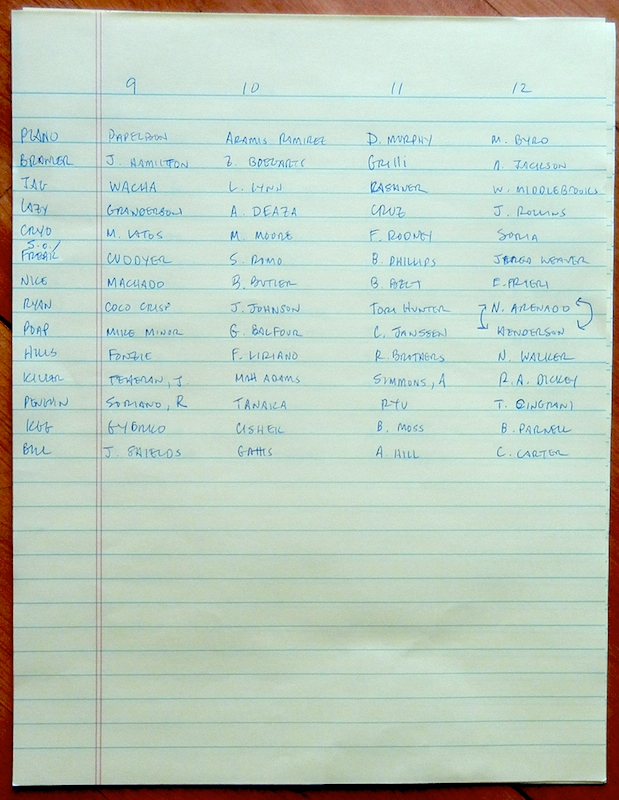 9 10 11 12
PLANO PAPELBON ARAMIS RAMIREZ D. MURPHY M. BYRD
BRAWLER J. HAMILTON Z. BOGARTS GRilli A. JACKSON
TAG WACHA L. LYNN CASHNER W. MIDDLEBROOKS
LAZY GRANDERSON A. DEAZA CRUZ J. ROLLINS
CRYO M. LATOS M. MOORE F. RODNEY SORIA
S.O./
FREAK CUDDYER S. ROMO B. PHILLIPS JERED WEAVER
NICE MACHADO B. BUTLER B. BELT E. FRIERI
RYAN COCO CRISP J. JOHNSON TORII HUNTER N. ARENADO
POAP MIKE MINOR G. BALFOUR C. JANSSEN HENDERSON
HILLS FONZIE F. LIRIANO R. BROTHERS N. WALKER
KILLER TEHERAN, J. MATT ADAMS SIMMONS, A R. A. DICKEY
PENGUIN SORIANO, R TANAKA RYU T. CINGRANI
KEG GYORKO CISHEK B. MOSS B. PARNELL
BILL J. SHIELDS GATTIS A. HILL C. CARTER